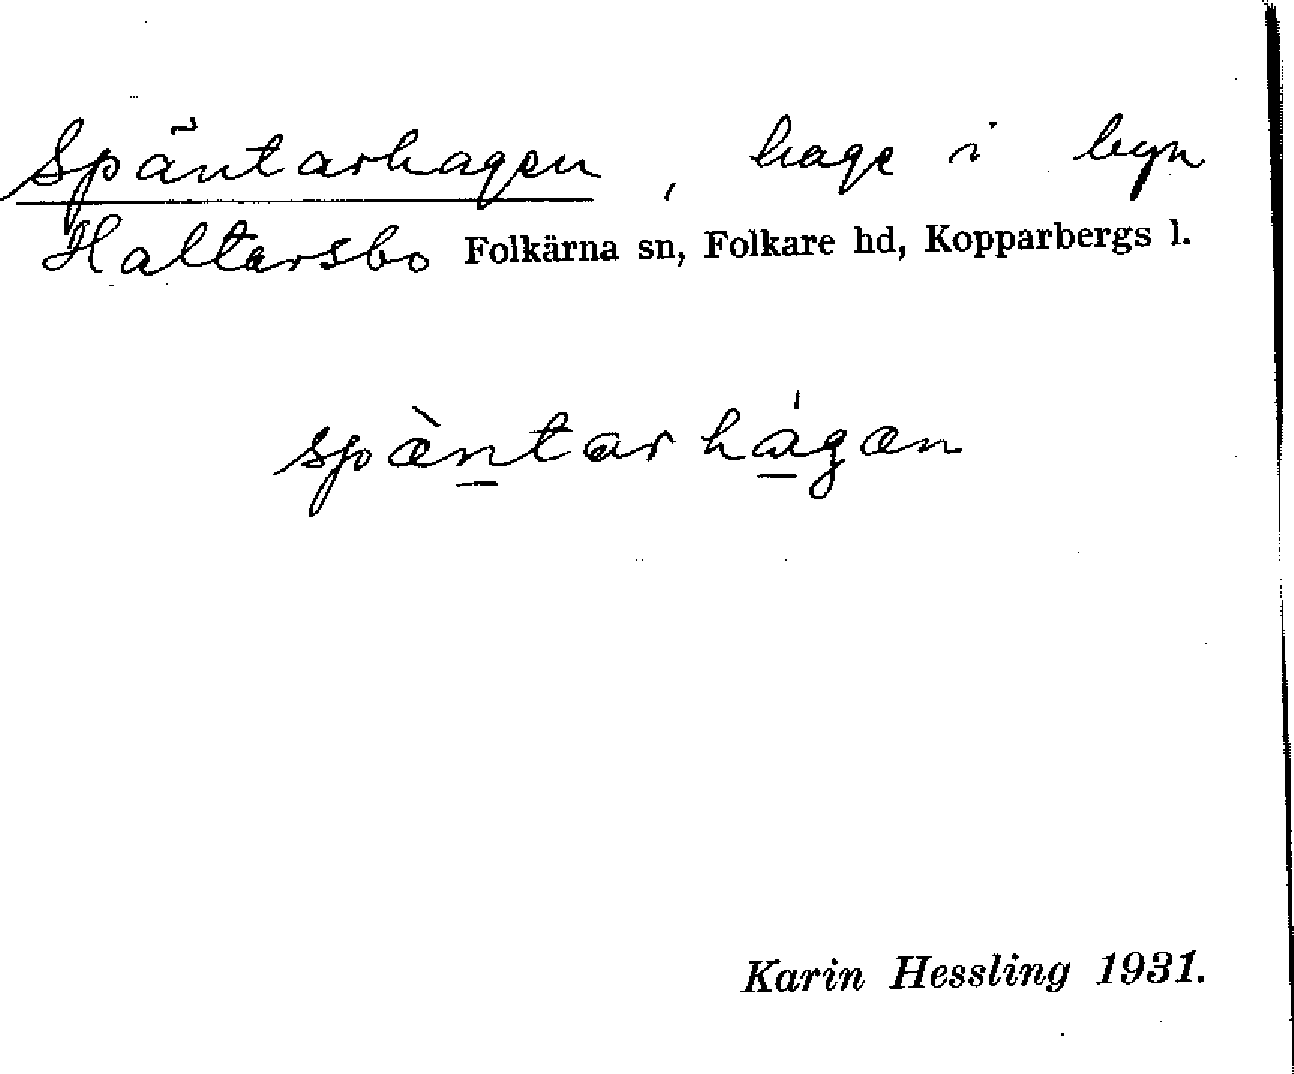 Späntarhagen, hage i byn
Haltarsbo Folkärna sn, Folkare hd, Kopparbergs l.
spæ̀n̲tarhá̲gæn
Karin Hessling 1931.